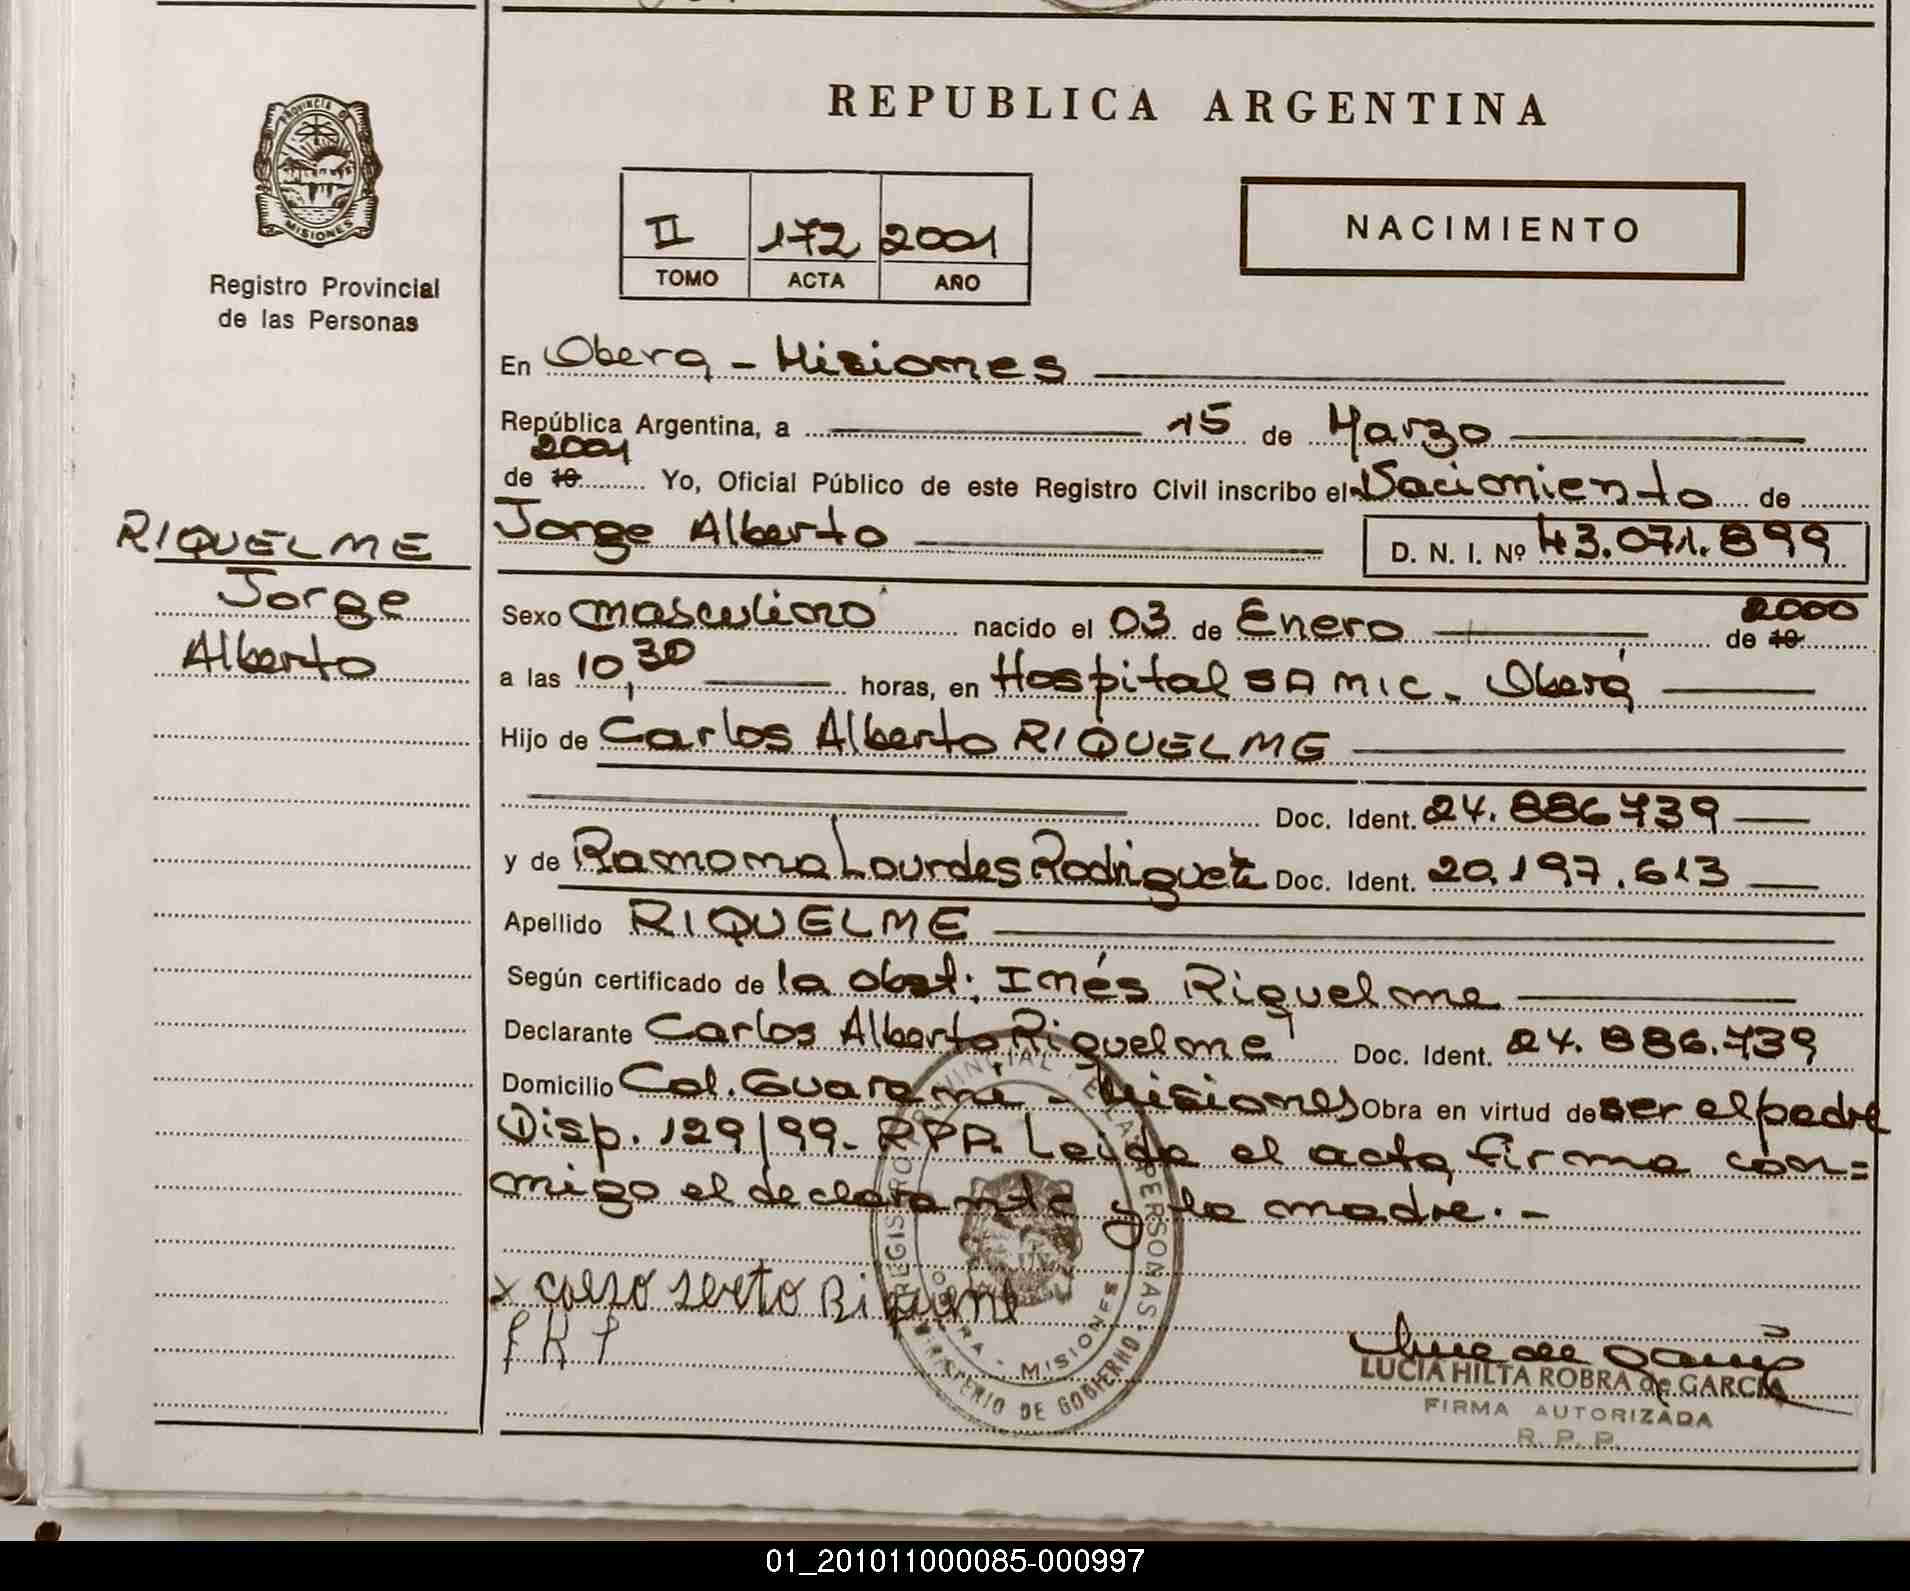 REPUBLICA ARGENTINA
PROVINCIA DE
MISIONES
Registro Provincial
de las Personas
II 172 2001
TOMO ACTA AÑO
NACIMIENTO
En Obera - Misiones
República Argentina, a 15 de Marzo
2001
de 19 Yo, Oficial Público de este Registro Civil inscribo el Nacimiento de
RIQUELME
Jorge
Alberto
Jorge Alberto D. N. I. Nº 43.071.899
Sexo masculino nacido el 03 de Enero de 19 2000
a las 10,30 horas, en Hospital SAMIC - Oberá
Hijo de Carlos Alberto RIQUELME
Doc. Ident. 24.886.739
y de Ramona Lourdes Doc. Ident. 20.197.613
Apellido RIQUELME
Según certificado de la obst. Inés Riquelme
Declarante Carlos Alberto Riquelme Doc. Ident. 24.886.739
Domicilio Col. Guarani - Misiones Obra en virtud de ser el padre
Disp. 129/99- RPP. Leida el acta, firma con=
migo el declarante y la madre.-
REGISTRO PROVINCIAL DE LAS PERSONAS
OBERA - MISIONES
MINISTERIO DE GOBIERNO
LUCIA HILTA ROBRA de GARCIA
FIRMA AUTORIZADA
R.P.P.
01_201011000085-000997